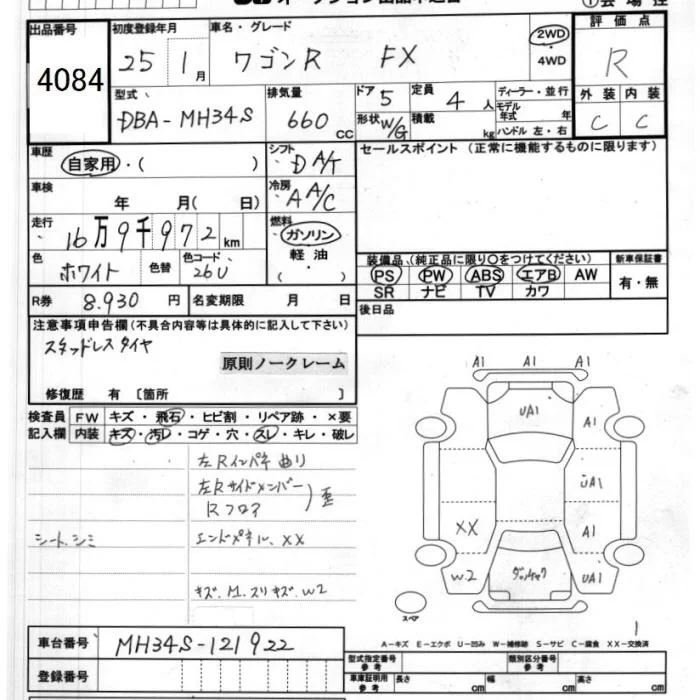 出品番号
4084
初度登録年月
25 1月
車名・グレード
ワゴンR FX
2WD
・
4WD
評価点
R
外装 内装
C C
型式
DBA-MH34S
排気量
660 CC
ドア 5
定員 4 人
形状 W/G
積載 kg
ディーラー・並行
モデル年式 年
ハンドル 左・右
車歴
自家用・( )
シフト
DA/T
セールスポイント(正常に機能するものに限ります)
車検
年 月( 日)
冷房
AA/C
走行
16万9千972km
燃料
ガソリン
軽油
( ・ )
色
ホワイト
色替
色コード
26U
装備品(純正品に限り○をつけてください)
PS PW ABS エアB AW
SR ナビ TV カワ
新車保証書
有・無
R券 8.930 円
名変期限 月 日
後日品
注意事項申告欄(不具合内容等は具体的に記入して下さい)
スタッドレスタイヤ
原則ノークレーム
修復歴 有 [箇所 ]
検査員 FW キズ・飛石・ヒビ割・リペア跡・×要
記入欄 内装 キズ・汚レ・コゲ・穴・スレ・キレ・破レ
左Rインパネ曲り
左Rサイドメンバー
Rフロア
歪
シート.シミ
エンドパネル.XX
キズ.M.スリキズ.W2
A1 A1 A1
UA1
A1
UA1
XX
A1
W2
UA1
スペア
1
A-キズ E-エクボ U-凹み W-補修跡 S-サビ C-腐食 XX-交換済
車台番号 MH34S-121922
登録番号
型式指定番号
参考
類別区分番号
参考
車庫証明用
参考
長さ cm 幅 cm 高さ cm